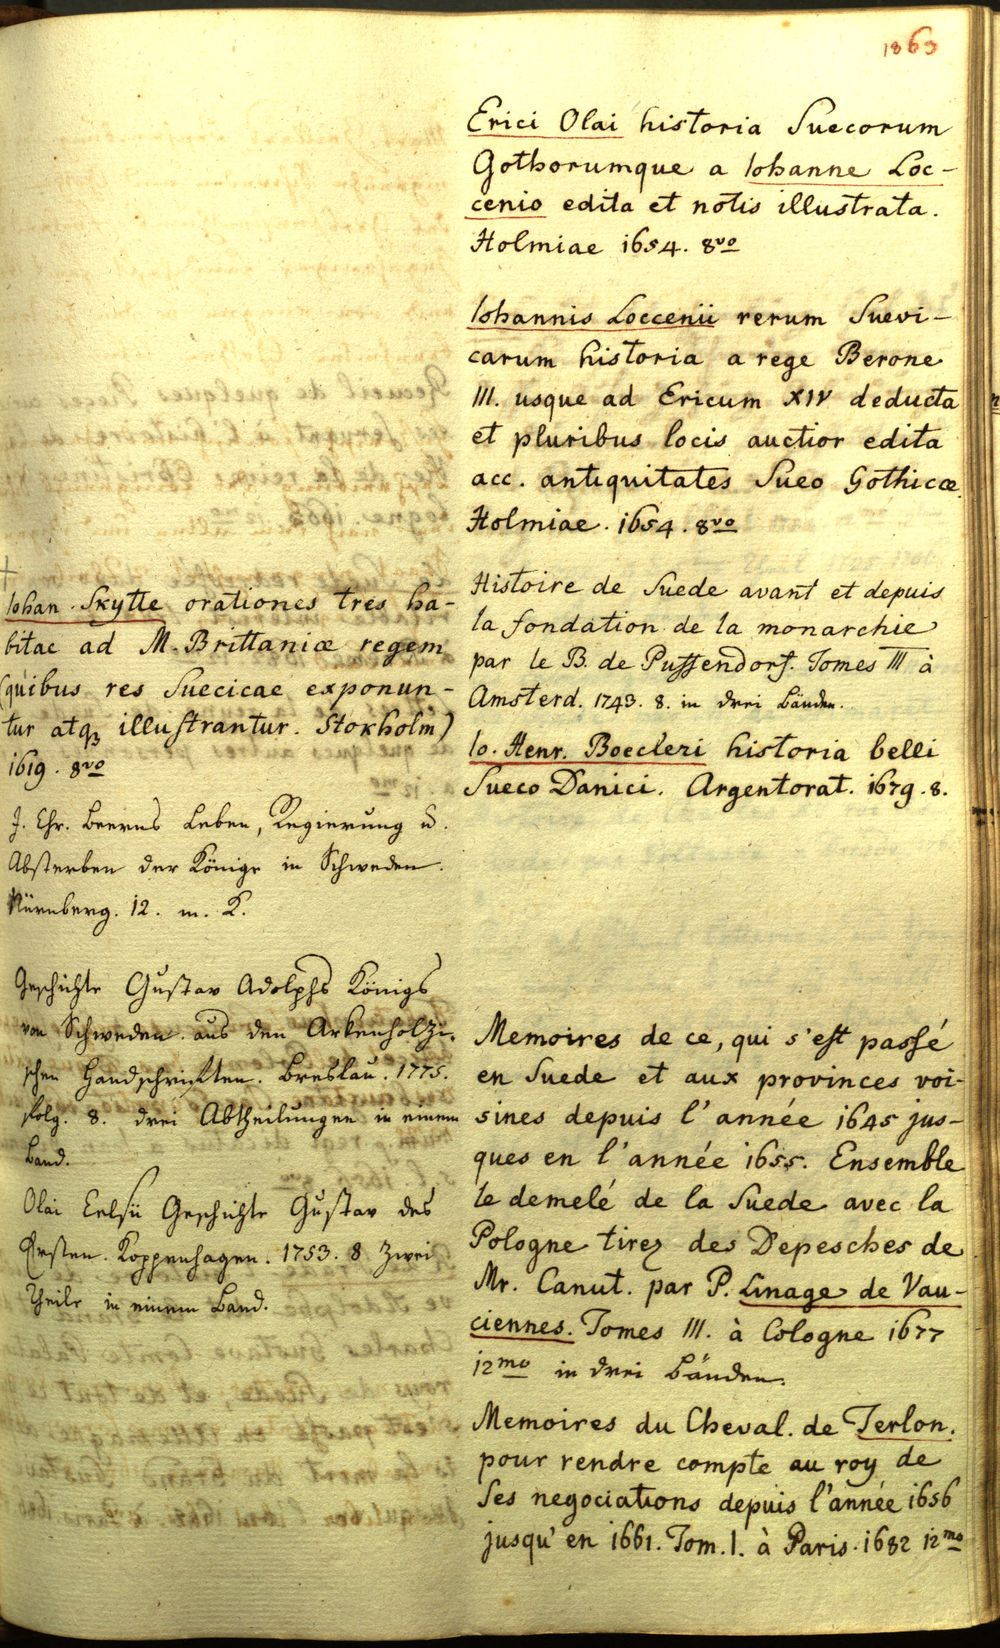 1869
Erici Olai historia Suecorum
Gothorumque a Iohanne Loc-
cenio edita et notis illustrata.
Holmiae 1654. 8vo
Iohannis Loccenii rerum Suevi-
carum historia a rege Berone
III. usque ad Ericum XIV deducta
et pluribus locis auctior edita
acc. antiquitates Sueo Gothicæ.
Holmiae. 1654. 8vo
Histoire de Suede avant et depuis
la fondation de la monarchie
par le B. de Puffendorf. Tomes III à
Amsterd. 1743. 8. in drei Bänden.
Io. Henr. Boecleri historia belli
Sueco Danici. Argentorat. 1679. 8.
Memoires de ce, qui s'est passé
en Suede et aux provinces voi-
sines depuis l'année 1645 jus-
ques en l'année 1655. Ensemble
le demelé de la Suede avec la
Pologne tirez des Depesches de
Mr. Canut. par P. Linage de Vau-
ciennes. Tomes III. à Cologne 1677
12mo in drei Bänden.
Memoires du Cheval. de Terlon.
pour rendre compte au roy de
ses negociations depuis l'année 1656
jusqu'en 1661. Tom. I. à Paris. 1682 12mo
Iohan. Skytte orationes tres ha-
bitae ad M. Brittaniæ regem
(quibus res Suecicae exponun-
tur atq3 illustrantur. Stokholm)
1619. 8vo
J. Chr. Beerns Leben, Regierung u.
Absterben der Könige in Schweden.
Nürnberg. 12. m. K.
Geschichte Gustav Adolphs Königs
von Schweden aus den Arkenholzi-
schen Handschriften. Breslau. 1775.
folg. 8. drei Abtheilungen in einem
Band.
Olai Celsii Geschichte Gustav des
Ersten. Koppenhagen. 1753. 8 zwei
Theile in einem Band.